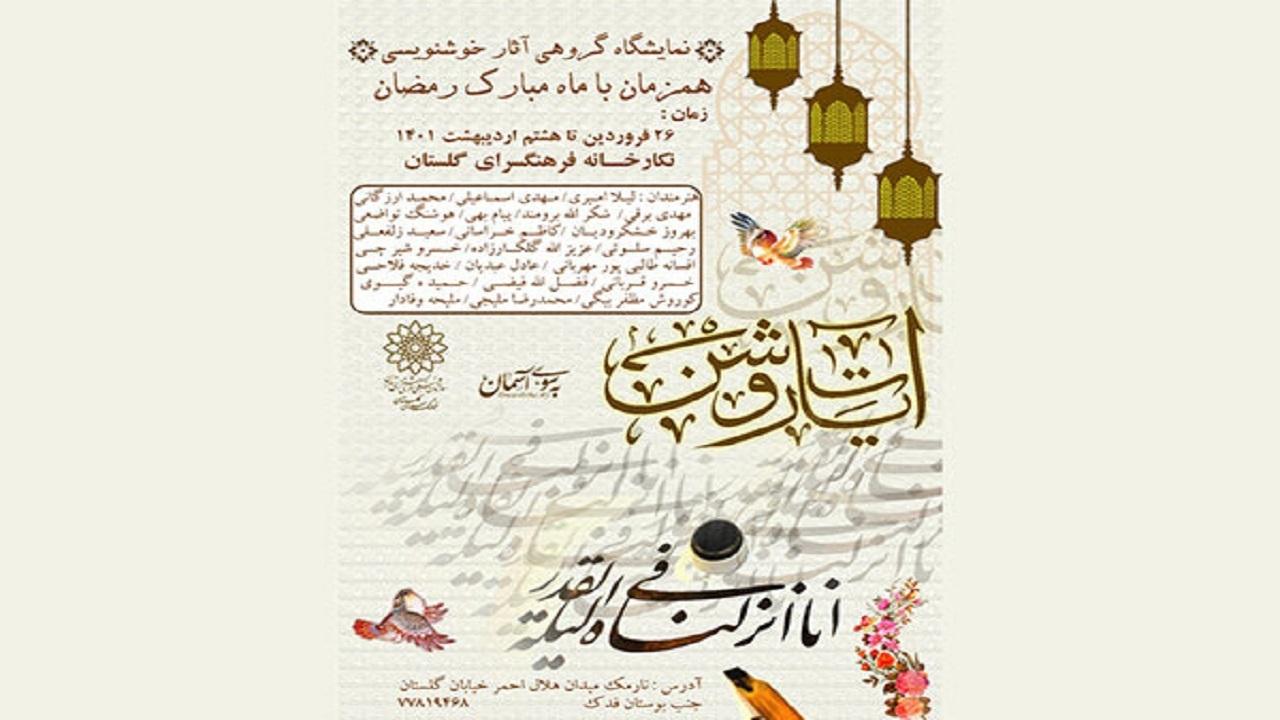 نمایشگاه گروهی آثار خوشنویسی
همزمان با ماه مبارک رمضان
زمان :
۲۶ فروردین تا هشتم اردیبهشت ۱۴۰۱
نگارخانه فرهنگسرای گلستان
هنرمندان : لیلا امیری / مهدی اسماعیلی / محمد اوزگانی
مهدی برقی / شکر الله برومند / پیام بهی / هوشنگ تواضعی
بهروز خشکرودیان / کاظم خراسانی / سعید زلفعلی
رحیم سلوتی / عزیز الله گلکارزاده / خسرو شیر چی
افسانه طالبی پور مهربانی / عادل عبدیان / خدیجه فلاحی
خسرو قربانی / فضل الله فیضی / حمیده گیوی
کوروش مظفر بیگی / محمدرضا ملیجی / ملیحه وفادار
آیات روشن
به سوی آسمان
انا انزلناه فی لیلة القدر
آدرس : نارمک میدان هلال احمر خیابان گلستان
جنب بوستان فدک
۷۷۸۱۹۴۶۸